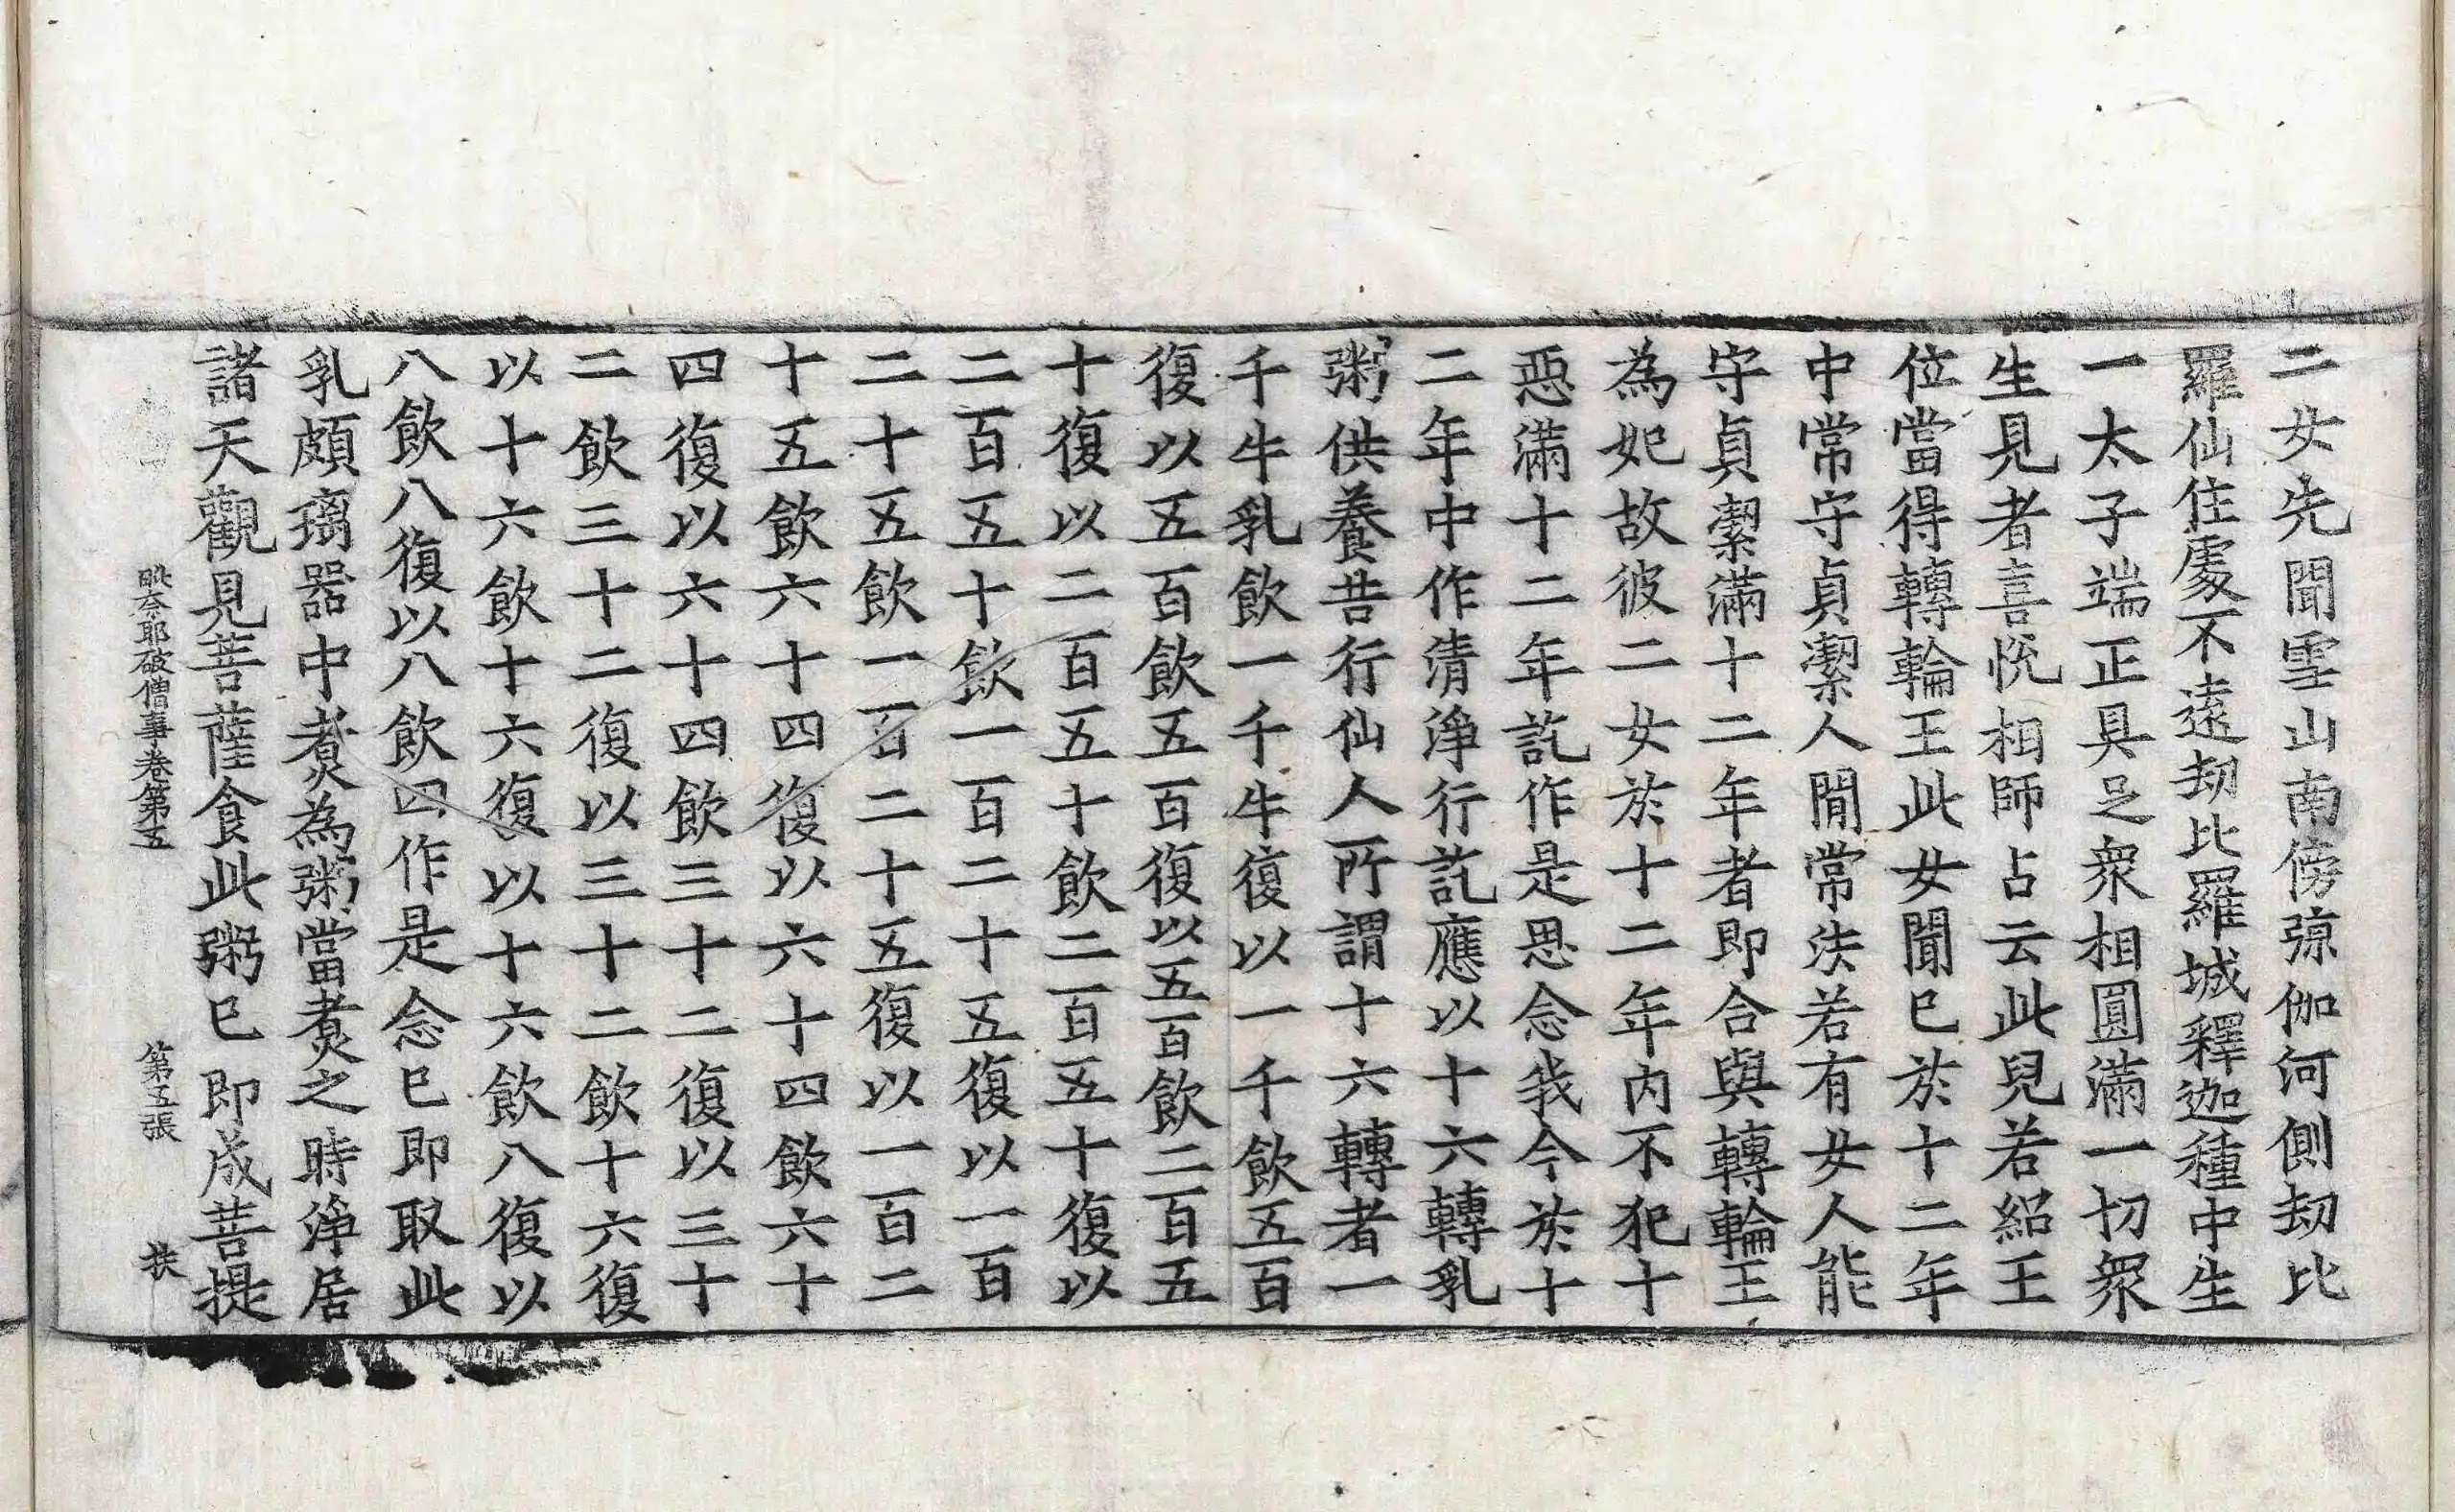 二女先聞雪山南傍弶伽河側劫比
羅仙住處不遠劫比羅城釋迦種中生
一太子端正具足衆相圓滿一切衆
生見者喜悅相師占云此兒若紹王
位當得轉輪王此女聞已於十二年
中常守貞潔人閒常法若有女人能
守貞潔滿十二年者即合與轉輪王
為妃故彼二女於十二年內不犯十
惡滿十二年訖作是思念我今於十
二年中作清淨行訖應以十六轉乳
粥供養昔行仙人所謂十六轉者一
千牛乳飲一千牛復以一千飲五百
復以五百飲五百復以五百飲二百五
十復以二百五十飲二百五十復以
二百五十飲一百二十五復以一百
二十五飲一百二十五復以一百二
十五飲六十四復以六十四飲六十
四復以六十四飲三十二復以三十
二飲三十二復以三十二飲十六復
以十六飲十六復以十六飲八復以
八飲八復以八飲四作是念已即取此
乳頗璃器中煑為粥當煑之時淨居
諸天觀見菩薩食此粥已即成菩提
毗奈耶破僧事卷第五 第五張 扶